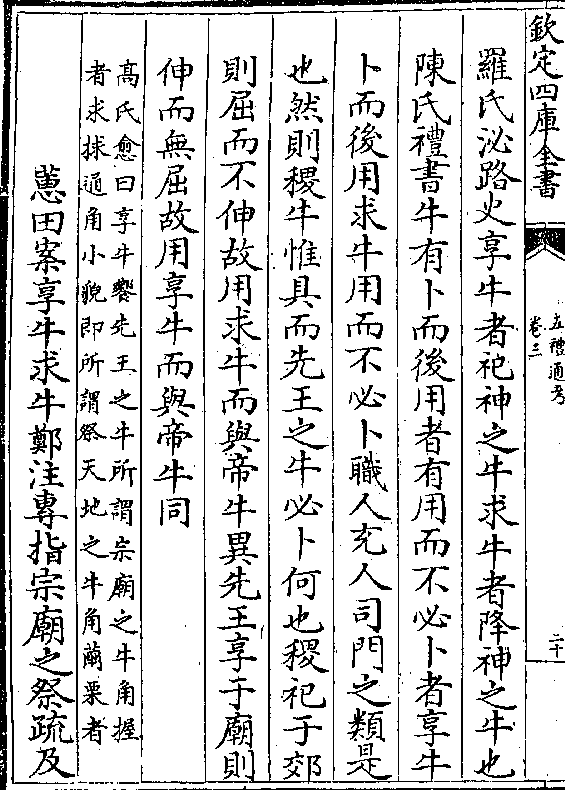 欽定四庫全書
五禮通考
卷三
二十
羅氏泌路史享牛者祀神之牛求牛者降神之牛也
陳氏禮書牛有卜而後用者有用而不必卜者享牛
卜而後用求牛用而不必卜職人充人司門之類是
也然則稷牛惟具而先王之牛必卜何也稷祀于郊
則屈而不伸故用求牛而與帝牛異先王享于廟則
伸而無屈故用享牛而與帝牛同
高氏愈曰享牛饗先王之牛所謂宗廟之牛角握
者求捄通角小貌即所謂祭天地之牛角繭栗者
蕙田案享牛求牛鄭注專指宗廟之祭疏及